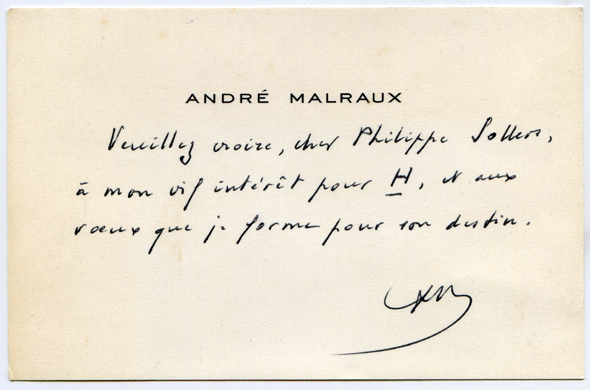 ANDRÉ MALRAUX
Veuillez croire, cher Philippe Sollers,
à mon vif intérêt pour H, et aux
vœux que je forme pour son destin.
AM